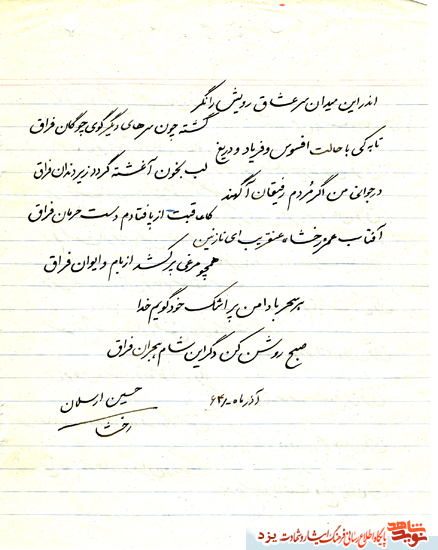 اندر این میدان سر عشاق رویش را نگر
گشته چون سرهای دیگر گوی چوگان فراق
تا به کی با حالت افسوس و فریاد و دریغ
لب بخون آغشته گردد زیر دندان فراق
در جوانی من اگر مُردم رفیقان آگهند
کاعاقبت از پا فتادم دست حرمان فراق
آفتاب عمر رخشا، عنقریب ای نازنین
همچو مرغی پر کشد از بام و ایوان فراق
هر سحر با دامن پر اشک خود گویم خدا
صبح روشن کن دگر این شام هجران فراق
آذر ماه ۶۴
حسین ارسلان
رخشا
نوید شاهد
پایگاه اطلاع رسانی فرهنگ ایثار و شهادت یزد